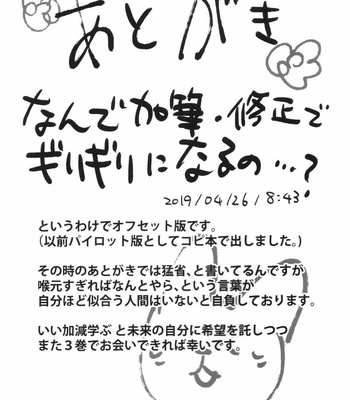 あとがき
なんで加筆・修正で
ギリギリになるの…？
2019/04/26/8:43
というわけでオフセット版です。
(以前パイロット版としてコピ本で出しました。)
その時のあとがきでは猛省、と書いてるんですが
喉元すぎればなんとやら、という言葉が
自分ほど似合う人間はいないと自負しております。
いい加減学ぶ と未来の自分に希望を託しつつ
また３巻でお会いできれば幸いです。